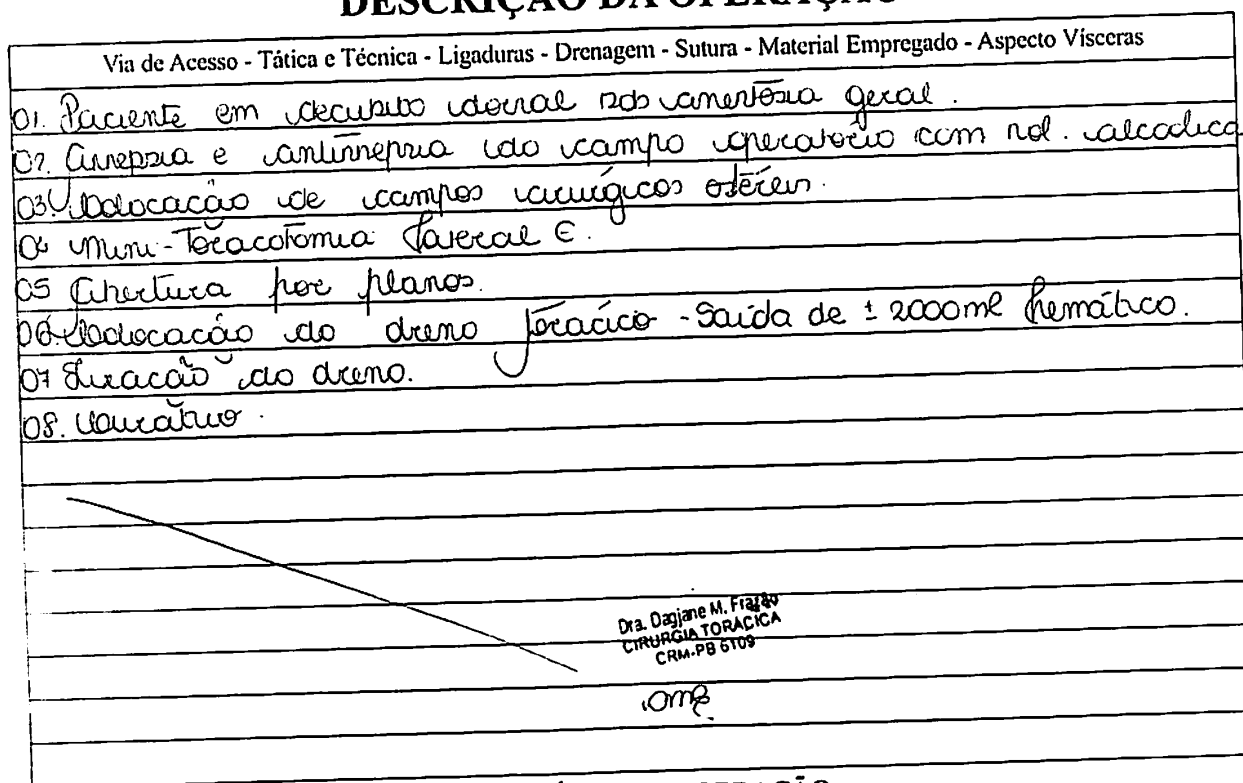 DESCRIÇÃO DA OPERAÇÃO
Via de Acesso - Tática e Técnica - Ligaduras - Drenagem - Sutura - Material Empregado - Aspecto Vísceras
01. Paciente em decúbito dorsal sob anestesia geral.
02. Assepsia e antissepsia do campo operatório com sol. alcoolica
03. Colocação de campos cirúgicos estéreis.
04 Mini-Toracotomia Lateral E.
05 Abertura por planos.
06. Colocação do dreno torácico - Saída de ± 2000ml hemático.
07 Fixação do dreno.
08. Curativo.
Dra. Dagjane M. Frazão
CIRURGIA TORACICA
CRM-PB 6109